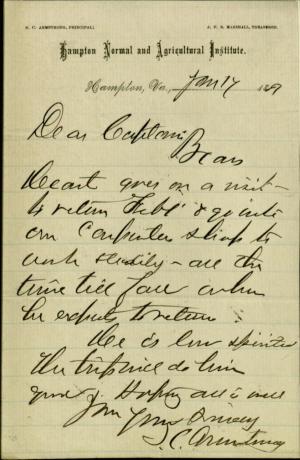 S. C. ARMSTRONG, PRINCIPAL. J. F. B. MARSHALL, TREASURER.
Hampton Normal and Agricultural Institute.
Hampton, Va., Jan 17 18
Dear Captain
Bears
Heart goes on a visit -
to return Feb 1 & go into
our Carpenter shop to
work steadily - all the
time till fall when
he expects to return.
He is low spirited
the trip will do him
good. Hoping all is well
I am Yours Sincerely
S. C. Armstrong